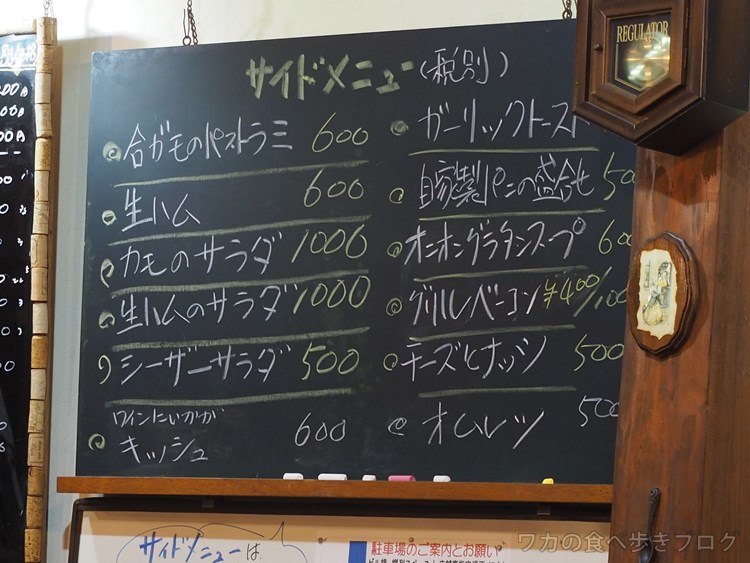 サイドメニュー(税別)
合ガモのパストラミ 600
生ハム 600
カモのサラダ 1000
生ハムのサラダ 1000
シーザーサラダ 500
ワインにいかが
キッシュ 600
ガーリックトースト
自家製パンの盛合せ 500
オニオングラタンスープ 600
グリルベーコン ¥400/100
チーズとナッツ 500
オムレツ 500
REGULATOR
サイドメニューは
駐車場のご案内とお願い
ワカの食べ歩きブログ